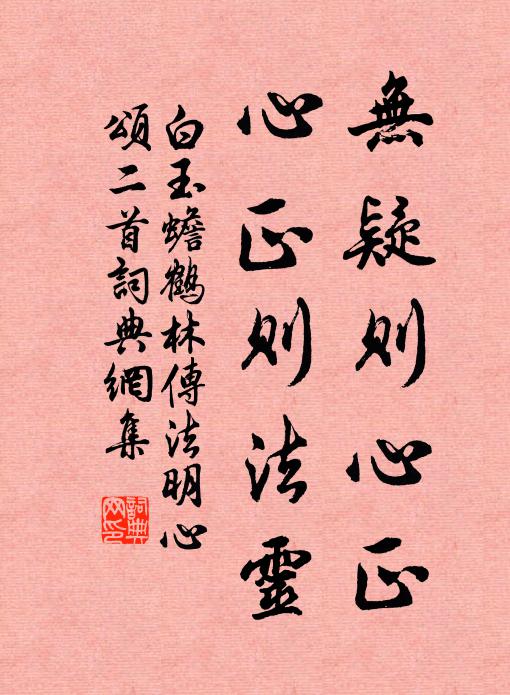 無疑則心正
心正則法靈
白玉蟾鶴林傳法明心
頌二首詞典網集
詞典
网印